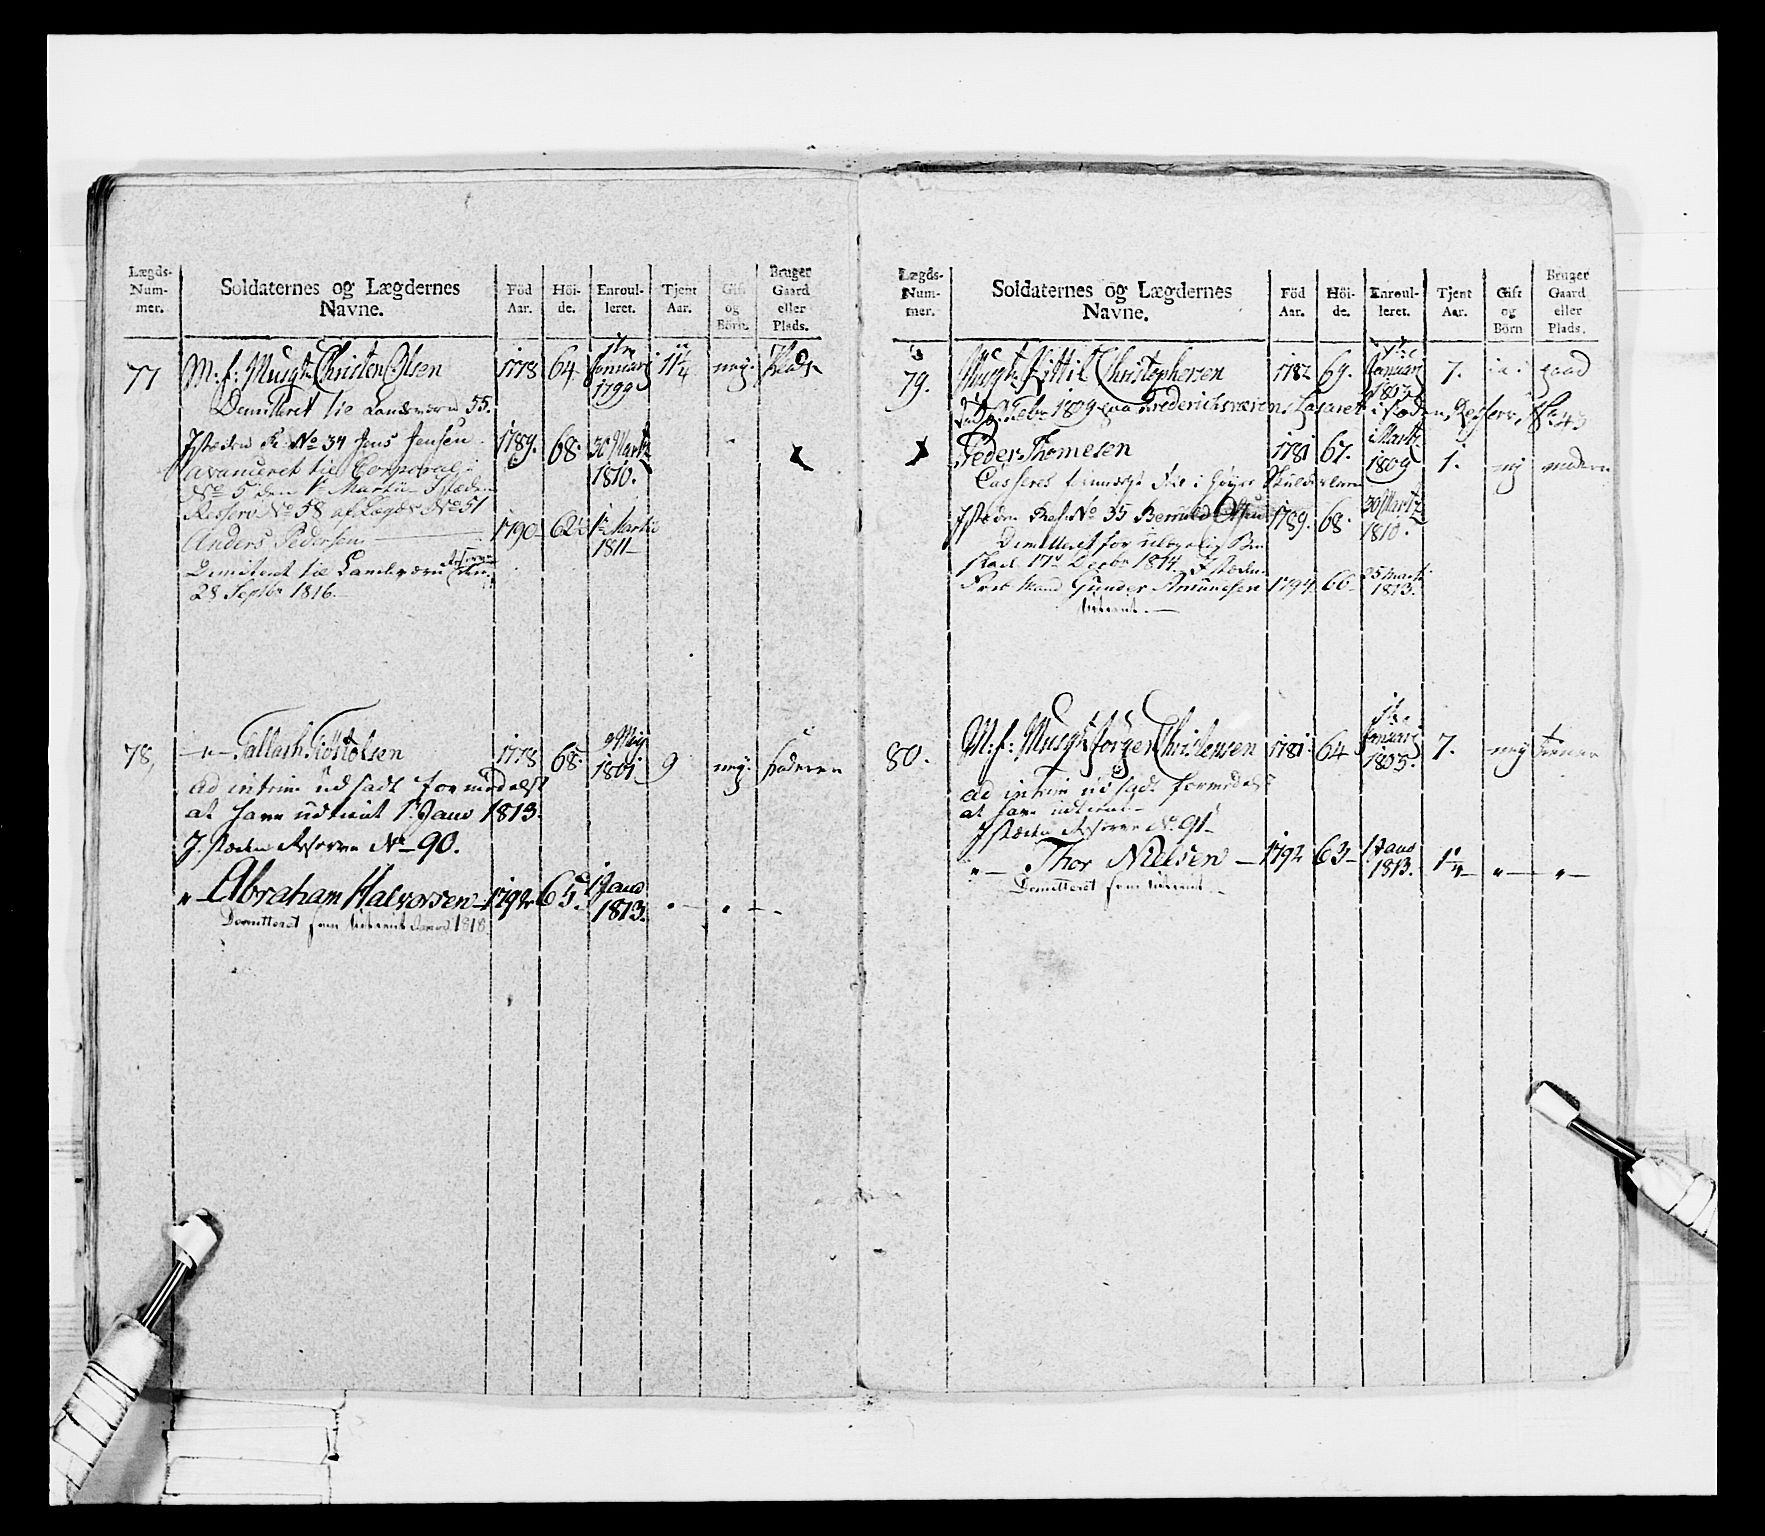 Lægds-Num-mer. Soldaternes og Lægdernes Navne. Fød Aar. Höi-de. Enroul-leret. Tjent Aar. Gift og Börn. Bruger Gaard eller Plads.
77 M: f: Musqt: Christen Olsen 1778 64 1ste Januarj 1799 11 1/4 nej. Plads
Demitteret til Landværn 55.
Isteden R: No 34 Jens Jensen 1789. 68. 30 Martz 1810.
avanceret til Corporal
No 5 den 1te Martii Isteden
Reserv No 58 af Lægd No 51
Anders Pedersen 1790 62 1/2 1te Martii 1811
Demiteret til Landværn
28 Septbr 1816.
78, Tallach Kiöstolsen 1778 68. Mij 1801 9 nej. Faderen
ad intrim udsadt formedelst
at have udtient 1t Janv 1813.
I stæden Reserve No 90.
" Abraham Halvorsen 1792 65. 1 Janv 1813. " "
Demitteret som udtient Janv 1818.
Lægds-Num-mer. Soldaternes og Lægdernes Navne. Fød Aar. Höi-de. Enroul-leret. Tjent Aar. Gift og Börn Bruger Gaard eller Plads.
79. Musqt: Kittil Christophersen 1782 69. Januarj 1803 7. ia. gaard
Febr 1809 paa Frederichsværens Lazaret i steden Reserv, No 43
Peder Thomesen 1781 67. Martz 1809 1. nej
Casseret
Isteden Res: No 35 Bernt Olsen 1789. 68. 30 Martz 1810.
Demitteret for
17de Decbr 1814 Isteden
Gunder Amundsen 1794 66 25 Martz 1813.
udtient.
80. M: f: Musqt: Jörgen Christensen 1781 64 1te Januarj 1803. 7. nej
ad intrim udsadt formedelst
at have udtient
I stæden Reserve No 91
" Thor Nielsen 1792 63 1 Janv 1813. 1 1/4 " "
Demitteret som udtient